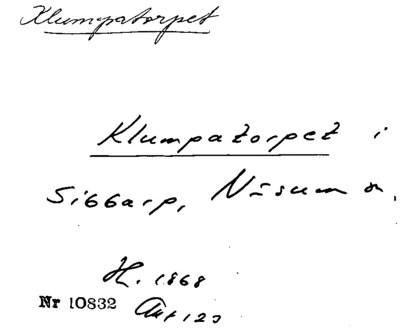 Klumpatorpet
Klumpatorpet i
Sibbarp, Näsum sn.
H. 1868
Nr 10832